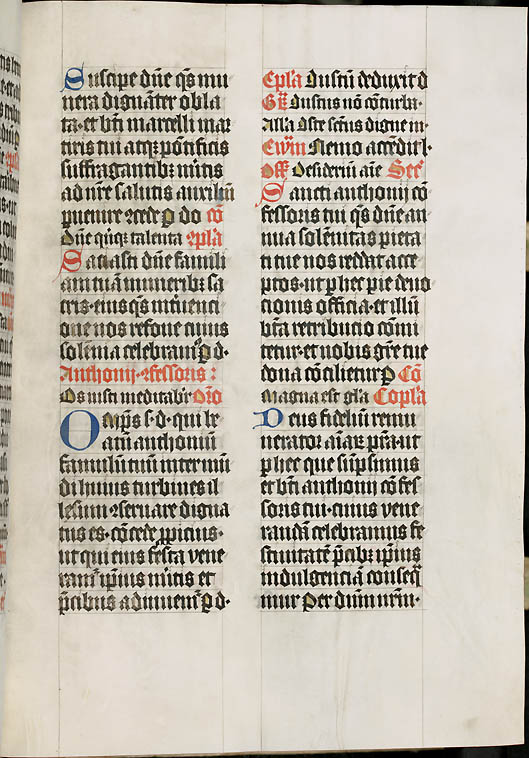 Suscipe dn̄e qs̄ mu
nera dignāter obla
ta·et bt̄i marcelli mar
tiris tui atqꝫ pōntificis
suffragantibꝫ mitis
ad nr̄e salutis auxiliū
puenire ꝯcede p do cō
Dn̄e quīqꝫ talenta ꝯpla
Saciasti dn̄e famili
am tuā muneribꝫ sa
cris·eius qs̄ intuenci
one nos refoue cuius
solēnia celebram᷒ p d·
Anthonij ꝯfessoris:
Os iusti meditabit᷒ Oīo
Omps̄ s·d· qui br̄
atū anthoniū
famulū tuū inter mū
di huius turbines il
lesum ꝯseruare digna
tus es·cōcede ppicius·
ut qui eius festa vene
ram᷒ ip̄ius mitis et
p̄cibus adiuuem᷒ p d·
Epl̄a Iustū deduxit d
Gr̄ Iustus nō cōturba·
Alla Oste sctūs digne in·
Ewm̄ Nemo accēdit l·
Off Desideriū aīe Secr̄
Sancti anthonij cō
fessoris tui qs̄ dn̄e an
nua solēnitas pieta
ti tue nos reddat acce
ptos·ut p hec pie deuo
cionis officia·et illū
bt̄a retributio comi
tetur·et nobis gr̄e tue
dona cōcilietur p Cō
Magna est gl̄a Cōpla
Deus fideliū remu
nerator aīaꝝ pr̄a·ut
p hec que sūpsimus
et bt̄i anthonij cōfes
soris tui·cuius vene
randā celebramus fe
stiuitatē p̄cibꝫ ip̄ius
indulgenciā conseq̄
mur Per dn̄m nr̄m·